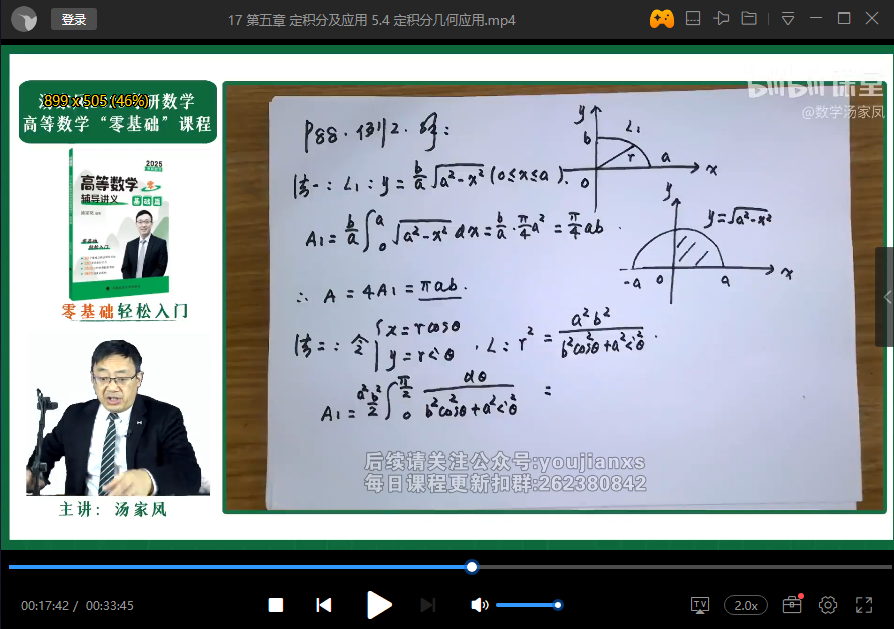 登录
17 第五章 定积分及应用 5.4 定积分几何应用.mp4
899 x 505 (46%)
研数学
高等数学“零基础”课程
2025
高等数学
辅导讲义
基础篇
零基础
轻松入门
零基础轻松入门
主讲： 汤家凤
bilibili 课堂
@数学汤家凤
P88. 例2. 解:
法一: L₁: y = b/a √(a²-x²) (0≤x≤a).
A₁ = b/a ∫₀ᵃ √(a²-x²) dx = b/a · π/4 a² = π/4 ab .
∴ A = 4A₁ = πab.
法二: 令 { x = r cosθ
y = r sinθ , L: r² = a²b² / (b²cos²θ + a²sin²θ) .
A₁ = a²b²/2 ∫₀^(π/2) dθ / (b²cos²θ + a²sin²θ) =
y
L₁
b
r
a
0
x
y
y = √(a²-x²)
-a
0
a
x
后续请关注公众号:youjianxs
每日课程更新扣群:262380842
00:17:42 / 00:33:45
TV
2.0x